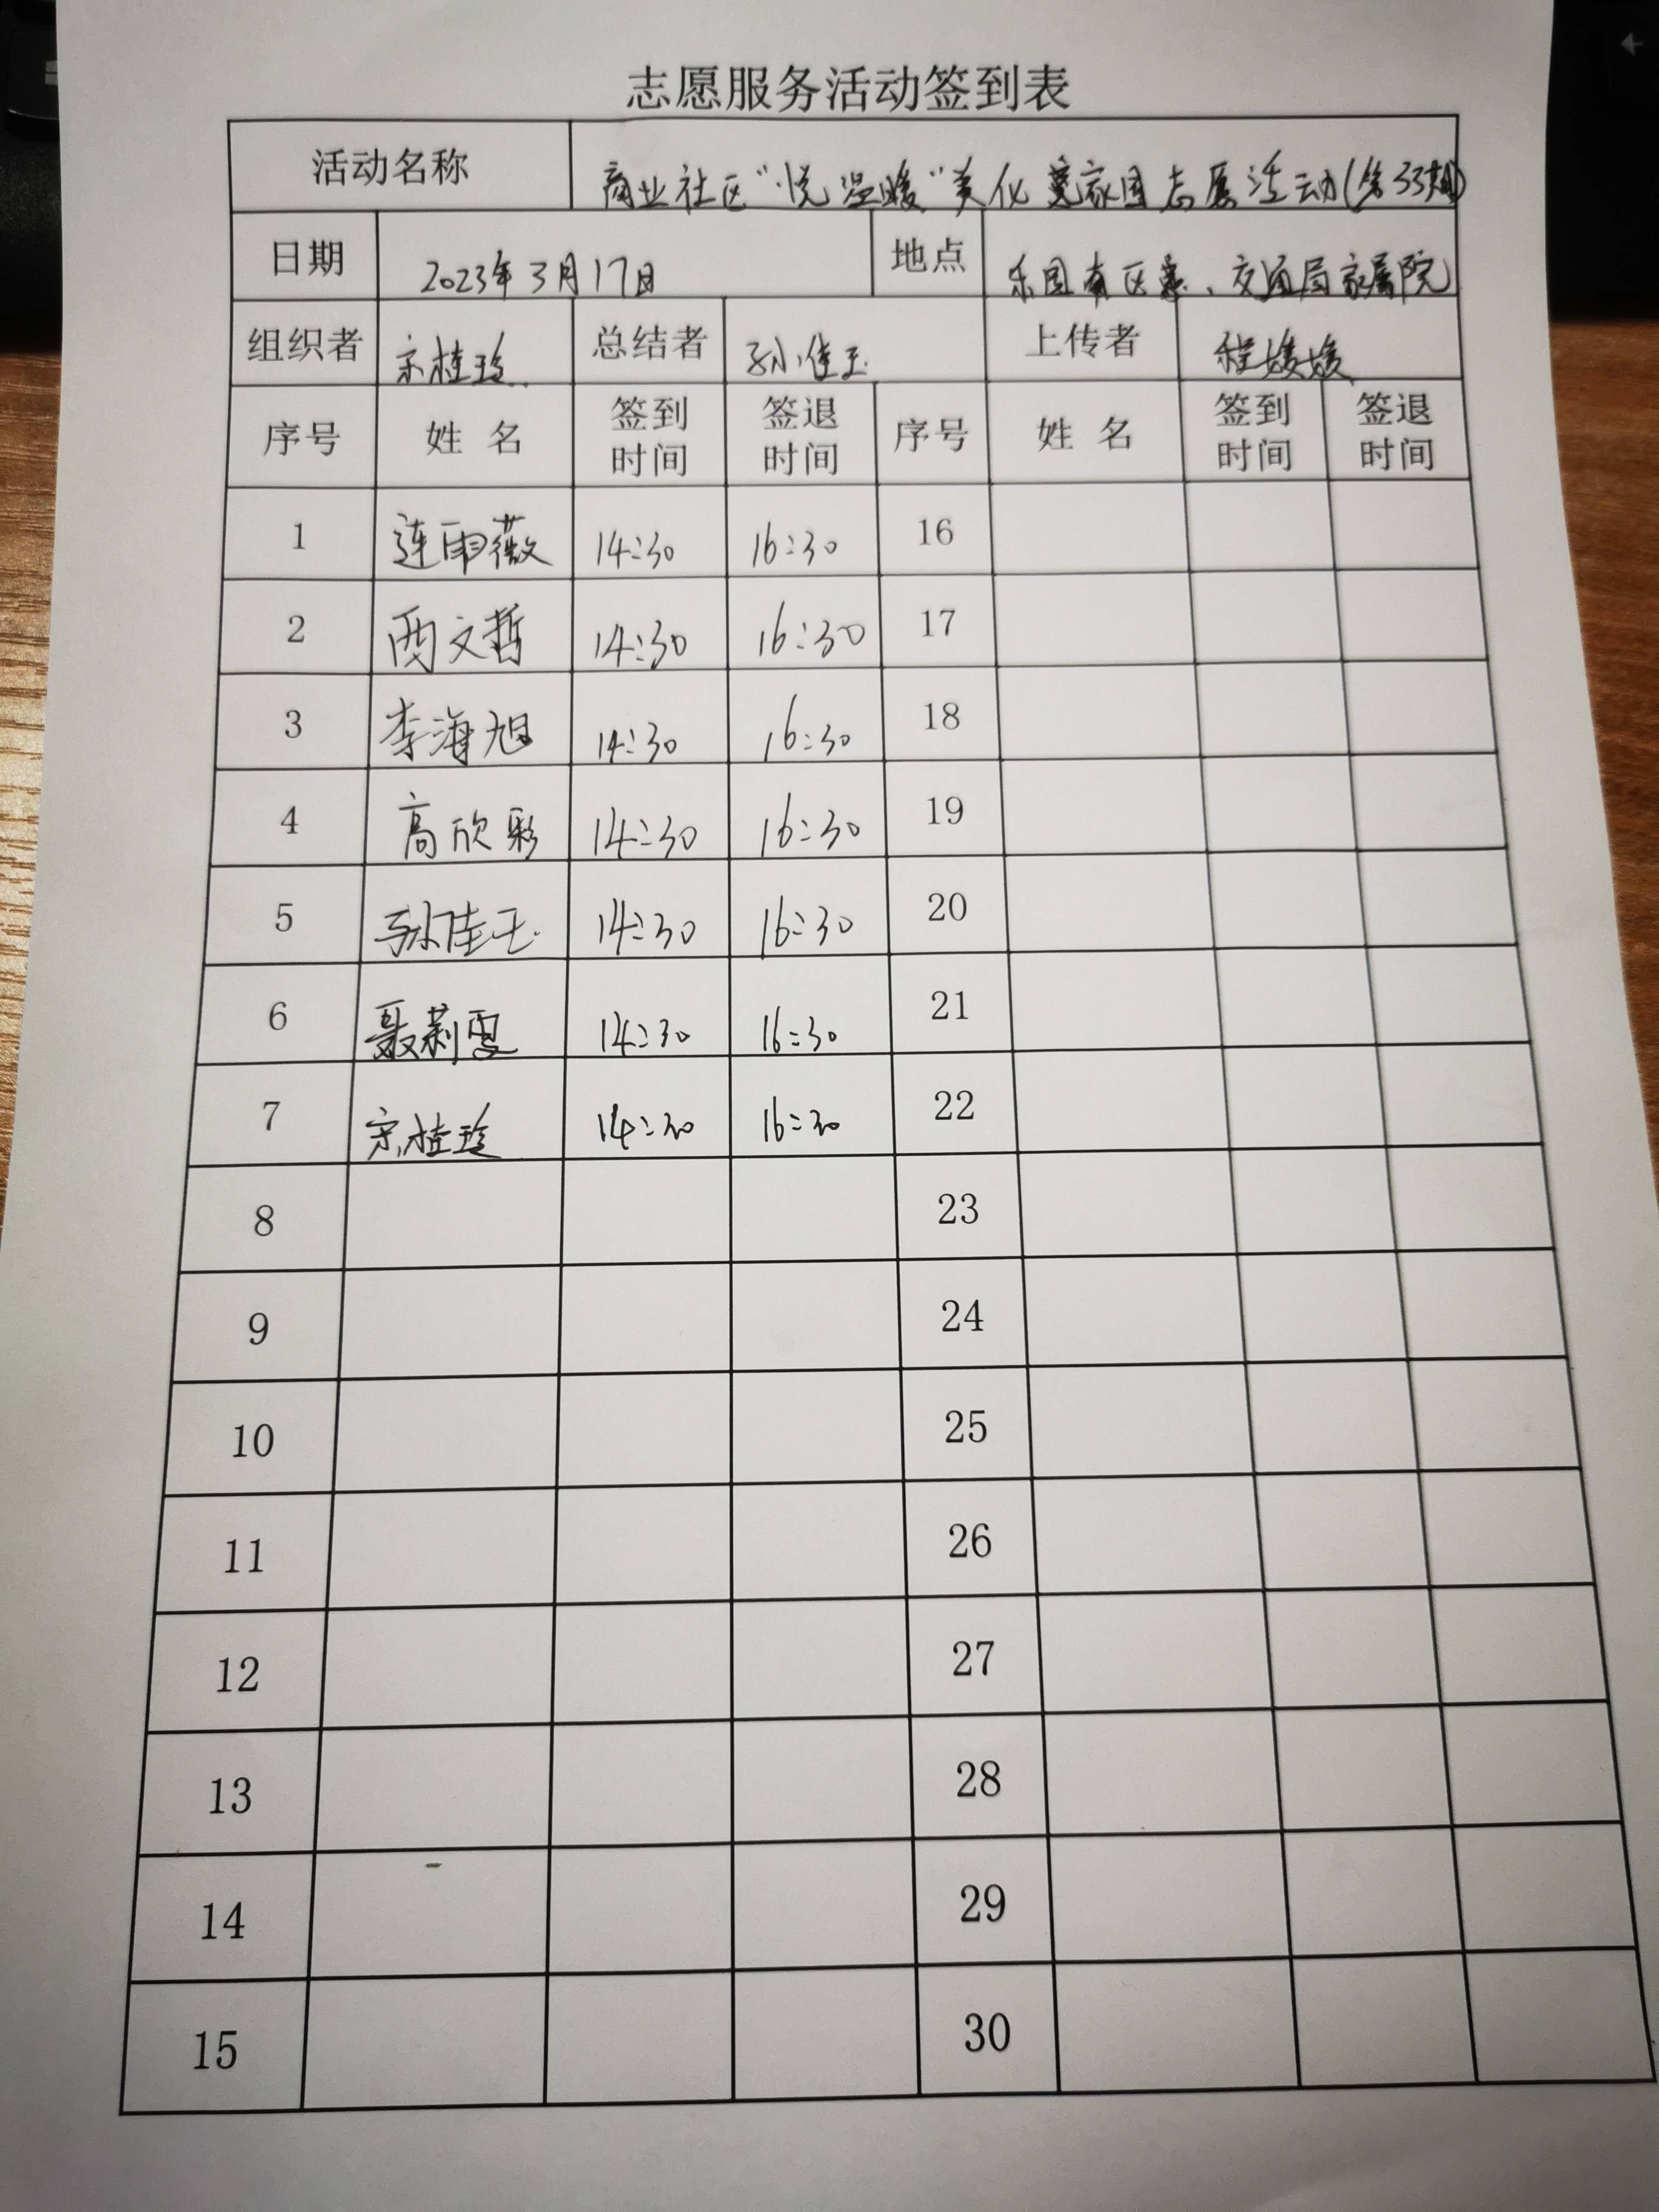 志愿服务活动签到表
活动名称 商业社区“悦温暖”美化家园志愿活动(第33期)
日期 2023年3月17日 地点 乐园 区 、交通局家属院
组织者 宋桂玲 总结者 孙佳玉 上传者 程媛媛
序号 姓名 签到时间 签退时间 序号 姓名 签到时间 签退时间
1 连雨薇 14:30 16:30 16
2 文哲 14:30 16:30 17
3 李海旭 14:30 16:30 18
4 高欣彩 14:30 16:30 19
5 孙佳玉 14:30 16:30 20
6 聂莉雯 14:30 16:30 21
7 宋桂玲 14:30 16:30 22
8 23
9 24
10 25
11 26
12 27
13 28
14 29
15 30